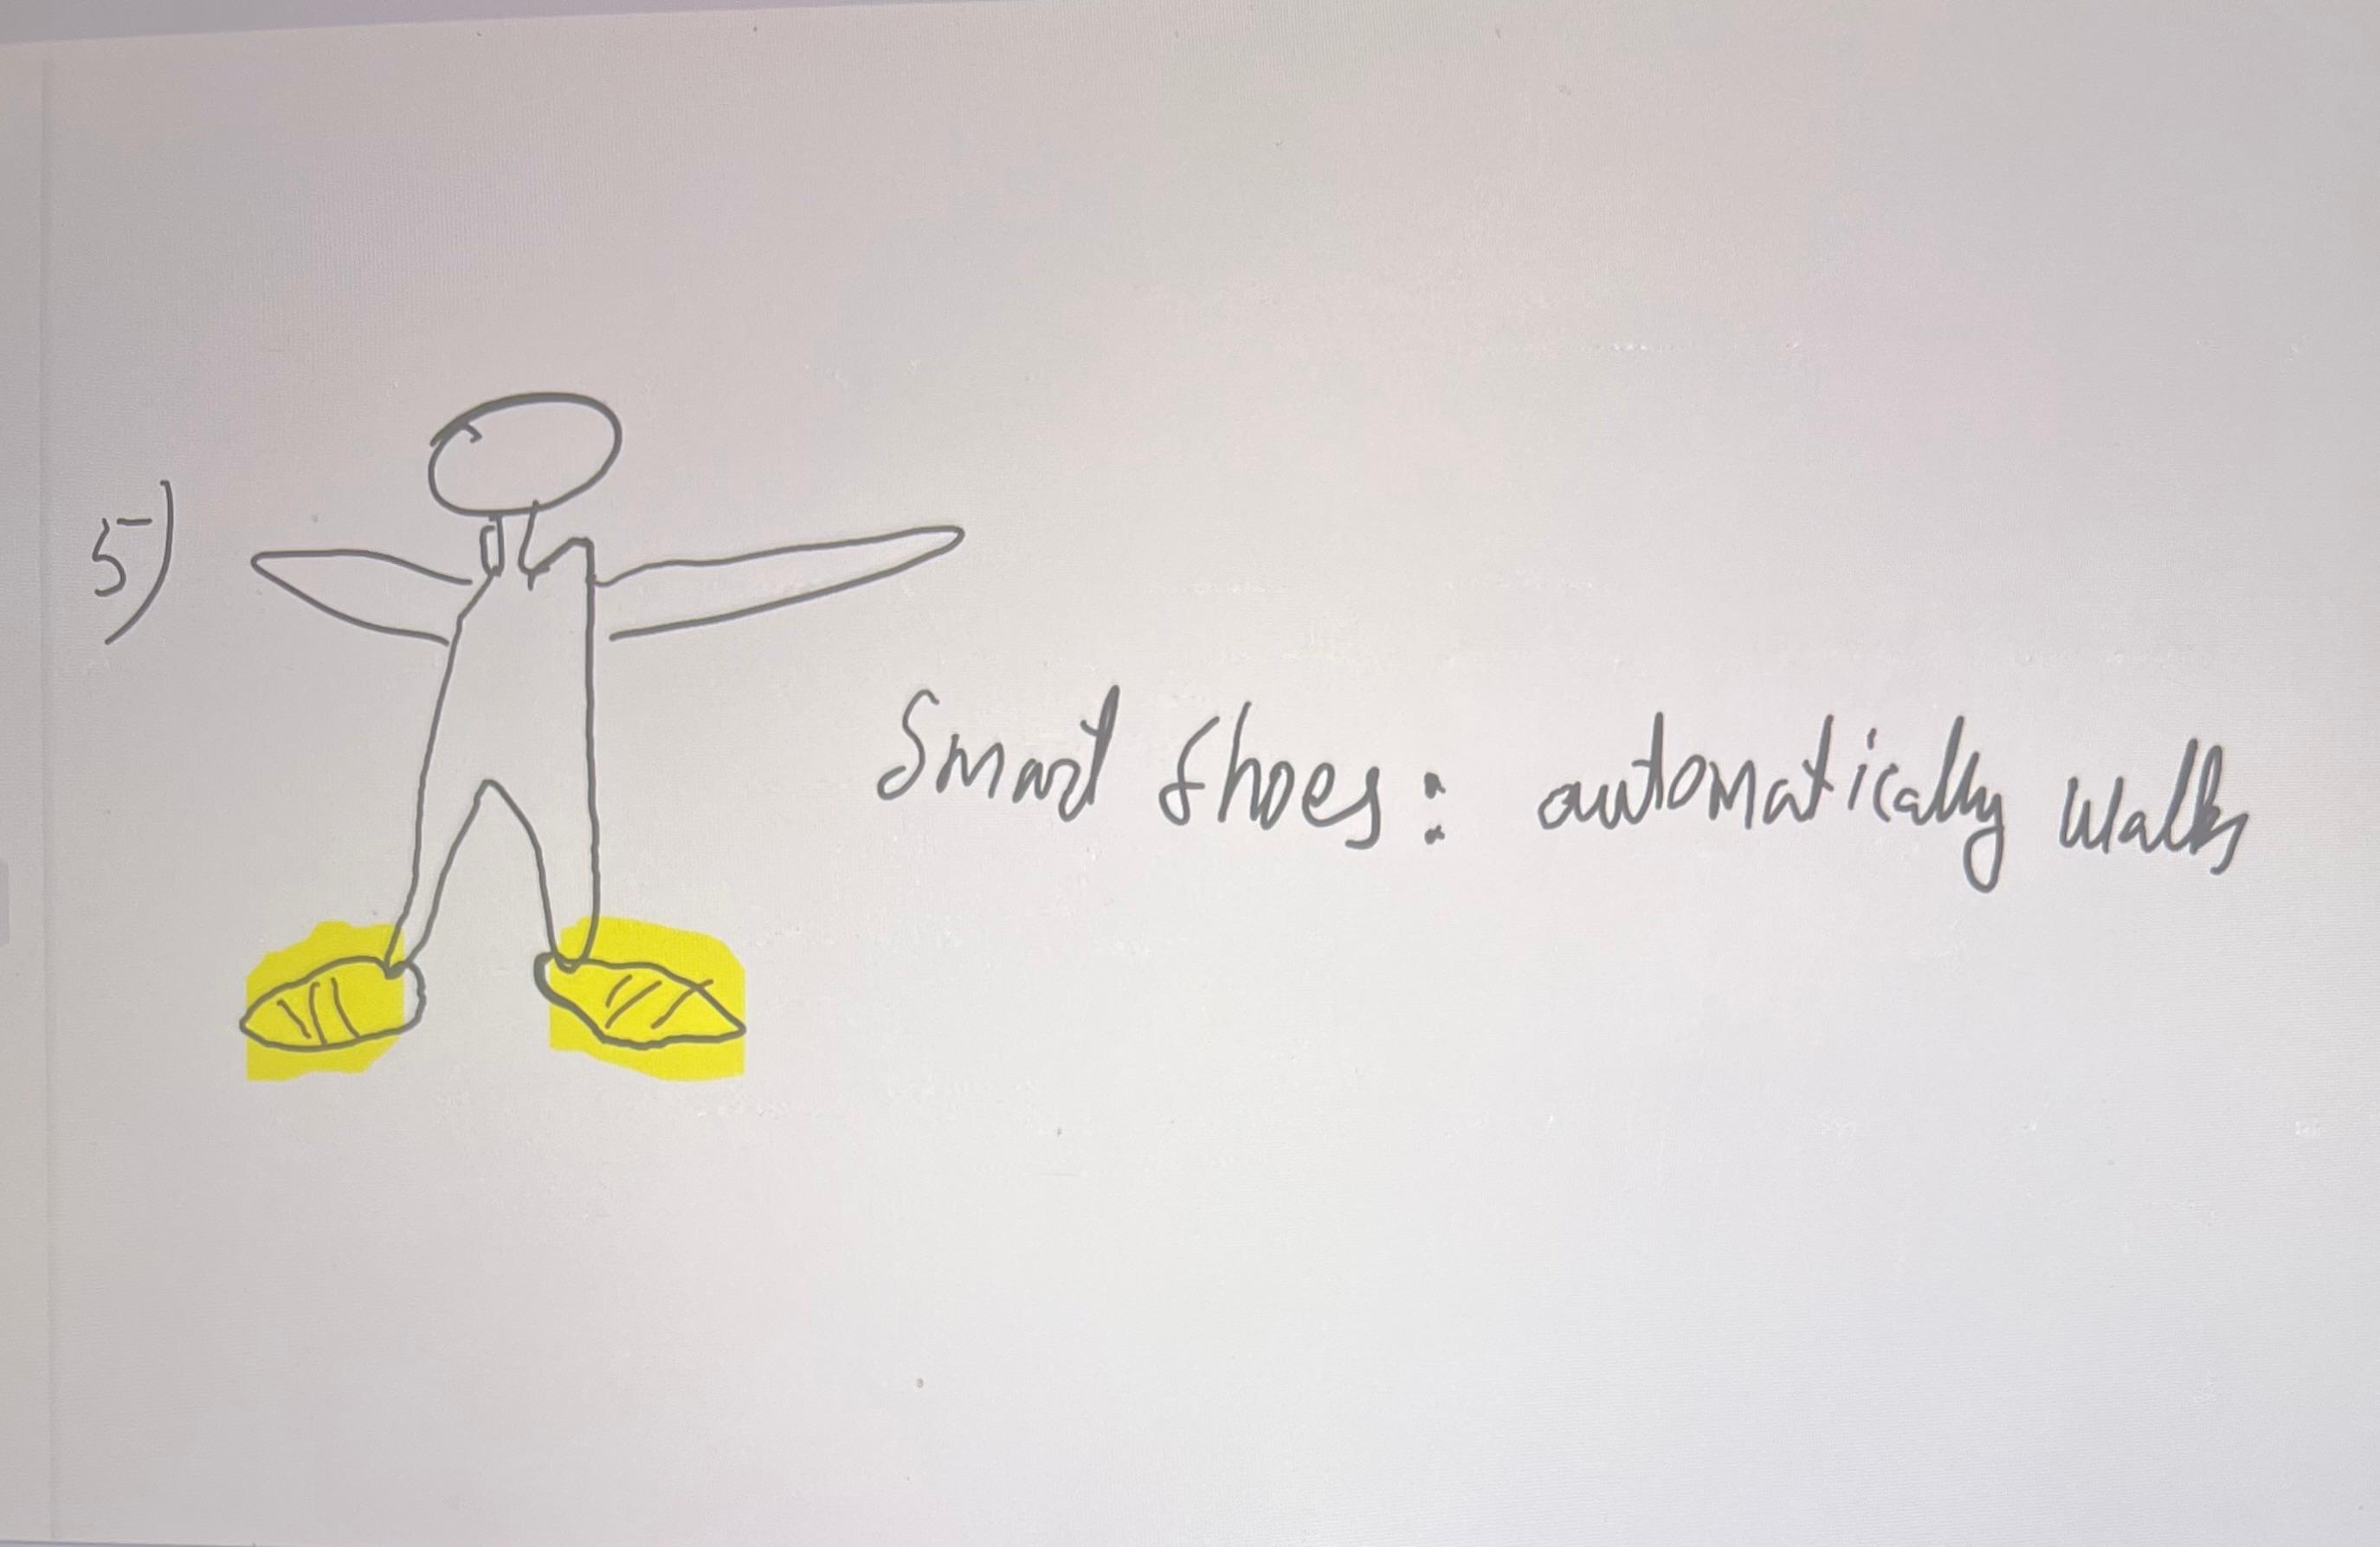 5)
Smart Shoes: automatically walks